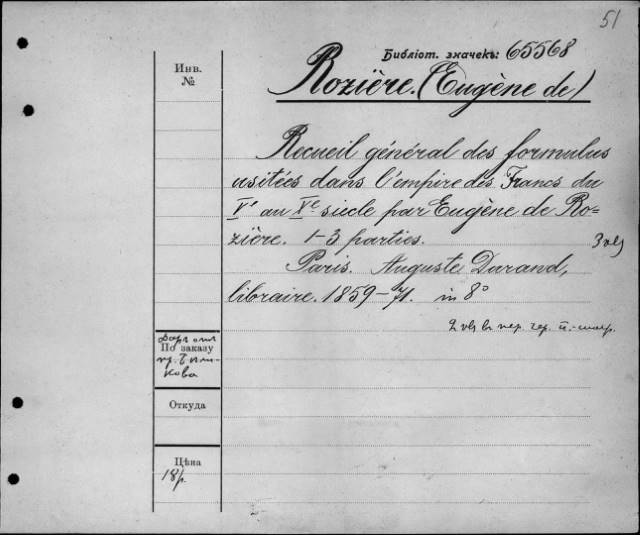 51
Библіот. значекъ: 65568
Инв.
№
Rozière. (Eugène de)
Recueil général des formulus
usitées dans l'empire des Francs du
V^e au X^e siecle par Eugène de Ro=
zière. 1-3 parties.
3 vol
Paris. Auguste Durand,
libraire. 1859-71. in 8°
2 vol въ пер. чер. п.-шагр.
По заказу
кова
Откуда
Цѣна
18р.